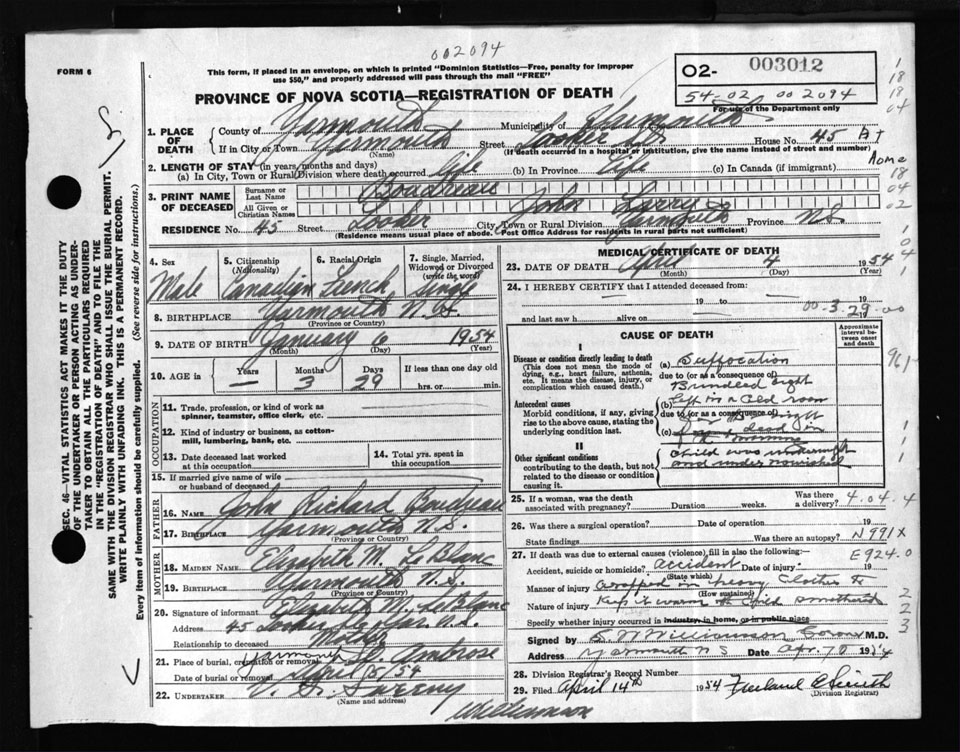 002094
FORM 6
This form, if placed in an envelope, on which is printed "Dominion Statistics—Free, penalty for improper
use $50," and properly addressed will pass through the mail "FREE"
02- 003012
54-02 002094
For use of the Department only
PROVINCE OF NOVA SCOTIA—REGISTRATION OF DEATH
1. PLACE OF DEATH
County of Yarmouth Municipality of Yarmouth
If in City or Town Yarmouth Street House No. 45 At Home
(Name) (If death occurred in a hospital or institution, give the name instead of street and number)
2. LENGTH OF STAY (in years, months and days)
(a) In City, Town or Rural Division where death occurred life (b) In Province life (c) In Canada (if immigrant)
3. PRINT NAME OF DECEASED
Surname or Last Name Boudreau
All Given or Christian Names John Larry
RESIDENCE No. 45 Street City, Town or Rural Division Yarmouth Province N.S.
(Residence means usual place of abode. Post Office Address for residents in rural parts not sufficient)
4. Sex Male
5. Citizenship (Nationality) Canadian
6. Racial Origin French
7. Single, Married, Widowed or Divorced (write the word) Single
8. BIRTHPLACE Yarmouth N.S.
(Province or Country)
9. DATE OF BIRTH January 6 1954
(Month) (Day) (Year)
10. AGE in — Years 3 Months 29 Days If less than one day old hrs. or min.
OCCUPATION
11. Trade, profession, or kind of work as spinner, teamster, office clerk, etc.
12. Kind of industry or business, as cotton-mill, lumbering, bank, etc.
13. Date deceased last worked at this occupation
14. Total yrs. spent in this occupation
15. If married give name of wife or husband of deceased
FATHER
16. NAME John Richard Boudreau
17. BIRTHPLACE Yarmouth N.S.
(Province or Country)
MOTHER
18. MAIDEN NAME Elizabeth M. LeBlanc
19. BIRTHPLACE Yarmouth N.S.
(Province or Country)
20. Signature of informant Elizabeth M. LeBlanc
Address 45 N.S.
Relationship to deceased Mother
21. Place of burial, cremation or removal Yarmouth St. Ambrose
Date of burial or removal April 5/54
22. UNDERTAKER V. S. Sweeny
(Name and address)
MEDICAL CERTIFICATE OF DEATH
23. DATE OF DEATH April 4 1954
(Month) (Day) (Year)
24. I HEREBY CERTIFY that I attended deceased from:
19 to 19
and last saw h alive on 19
00-3.29-00
CAUSE OF DEATH
Approximate interval between onset and death
I
Disease or condition directly leading to death
(This does not mean the mode of dying, e.g., heart failure, asthenia, etc. It means the disease, injury, or complication which caused death.)
(a) Suffocation
due to (or as a consequence of)
Antecedent causes
Morbid conditions, if any, giving rise to the above cause, stating the underlying condition last.
(b) left in a cold room
due to (or as a consequence of)
(c) found dead in
the morning
II
Other significant conditions
contributing to the death, but not related to the disease or condition causing it.
Child was underweight
and under nourished
25. If a woman, was the death associated with pregnancy? Duration weeks. Was there a delivery? 4.04.4
26. Was there a surgical operation? Date of operation
State findings Was there an autopsy? N991X
27. If death was due to external causes (violence), fill in also the following:— E924.0
Accident, suicide or homicide? accident Date of injury 19
(State which)
Manner of injury wrapped in heavy clothes to
(How sustained)
Nature of injury keep it warm & child smothered
Specify whether injury occurred in industry, in home, or in public place
Signed by Coroner M.D.
Address Yarmouth N S Date Apr. 7 1954
28. Division Registrar's Record Number
29. Filed April 14th 1954
(Division Registrar)
SEC. 46—VITAL STATISTICS ACT MAKES IT THE DUTY
OF THE UNDERTAKER OR PERSON ACTING AS UNDER-
TAKER TO OBTAIN ALL THE PARTICULARS REQUIRED
IN THE "REGISTRATION OF DEATH" AND TO FILE THE
SAME WITH THE DIVISION REGISTRAR WHO SHALL ISSUE THE BURIAL PERMIT.
WRITE PLAINLY WITH UNFADING INK. THIS IS A PERMANENT RECORD.
Every item of information should be carefully supplied. (See reverse side for instructions.)